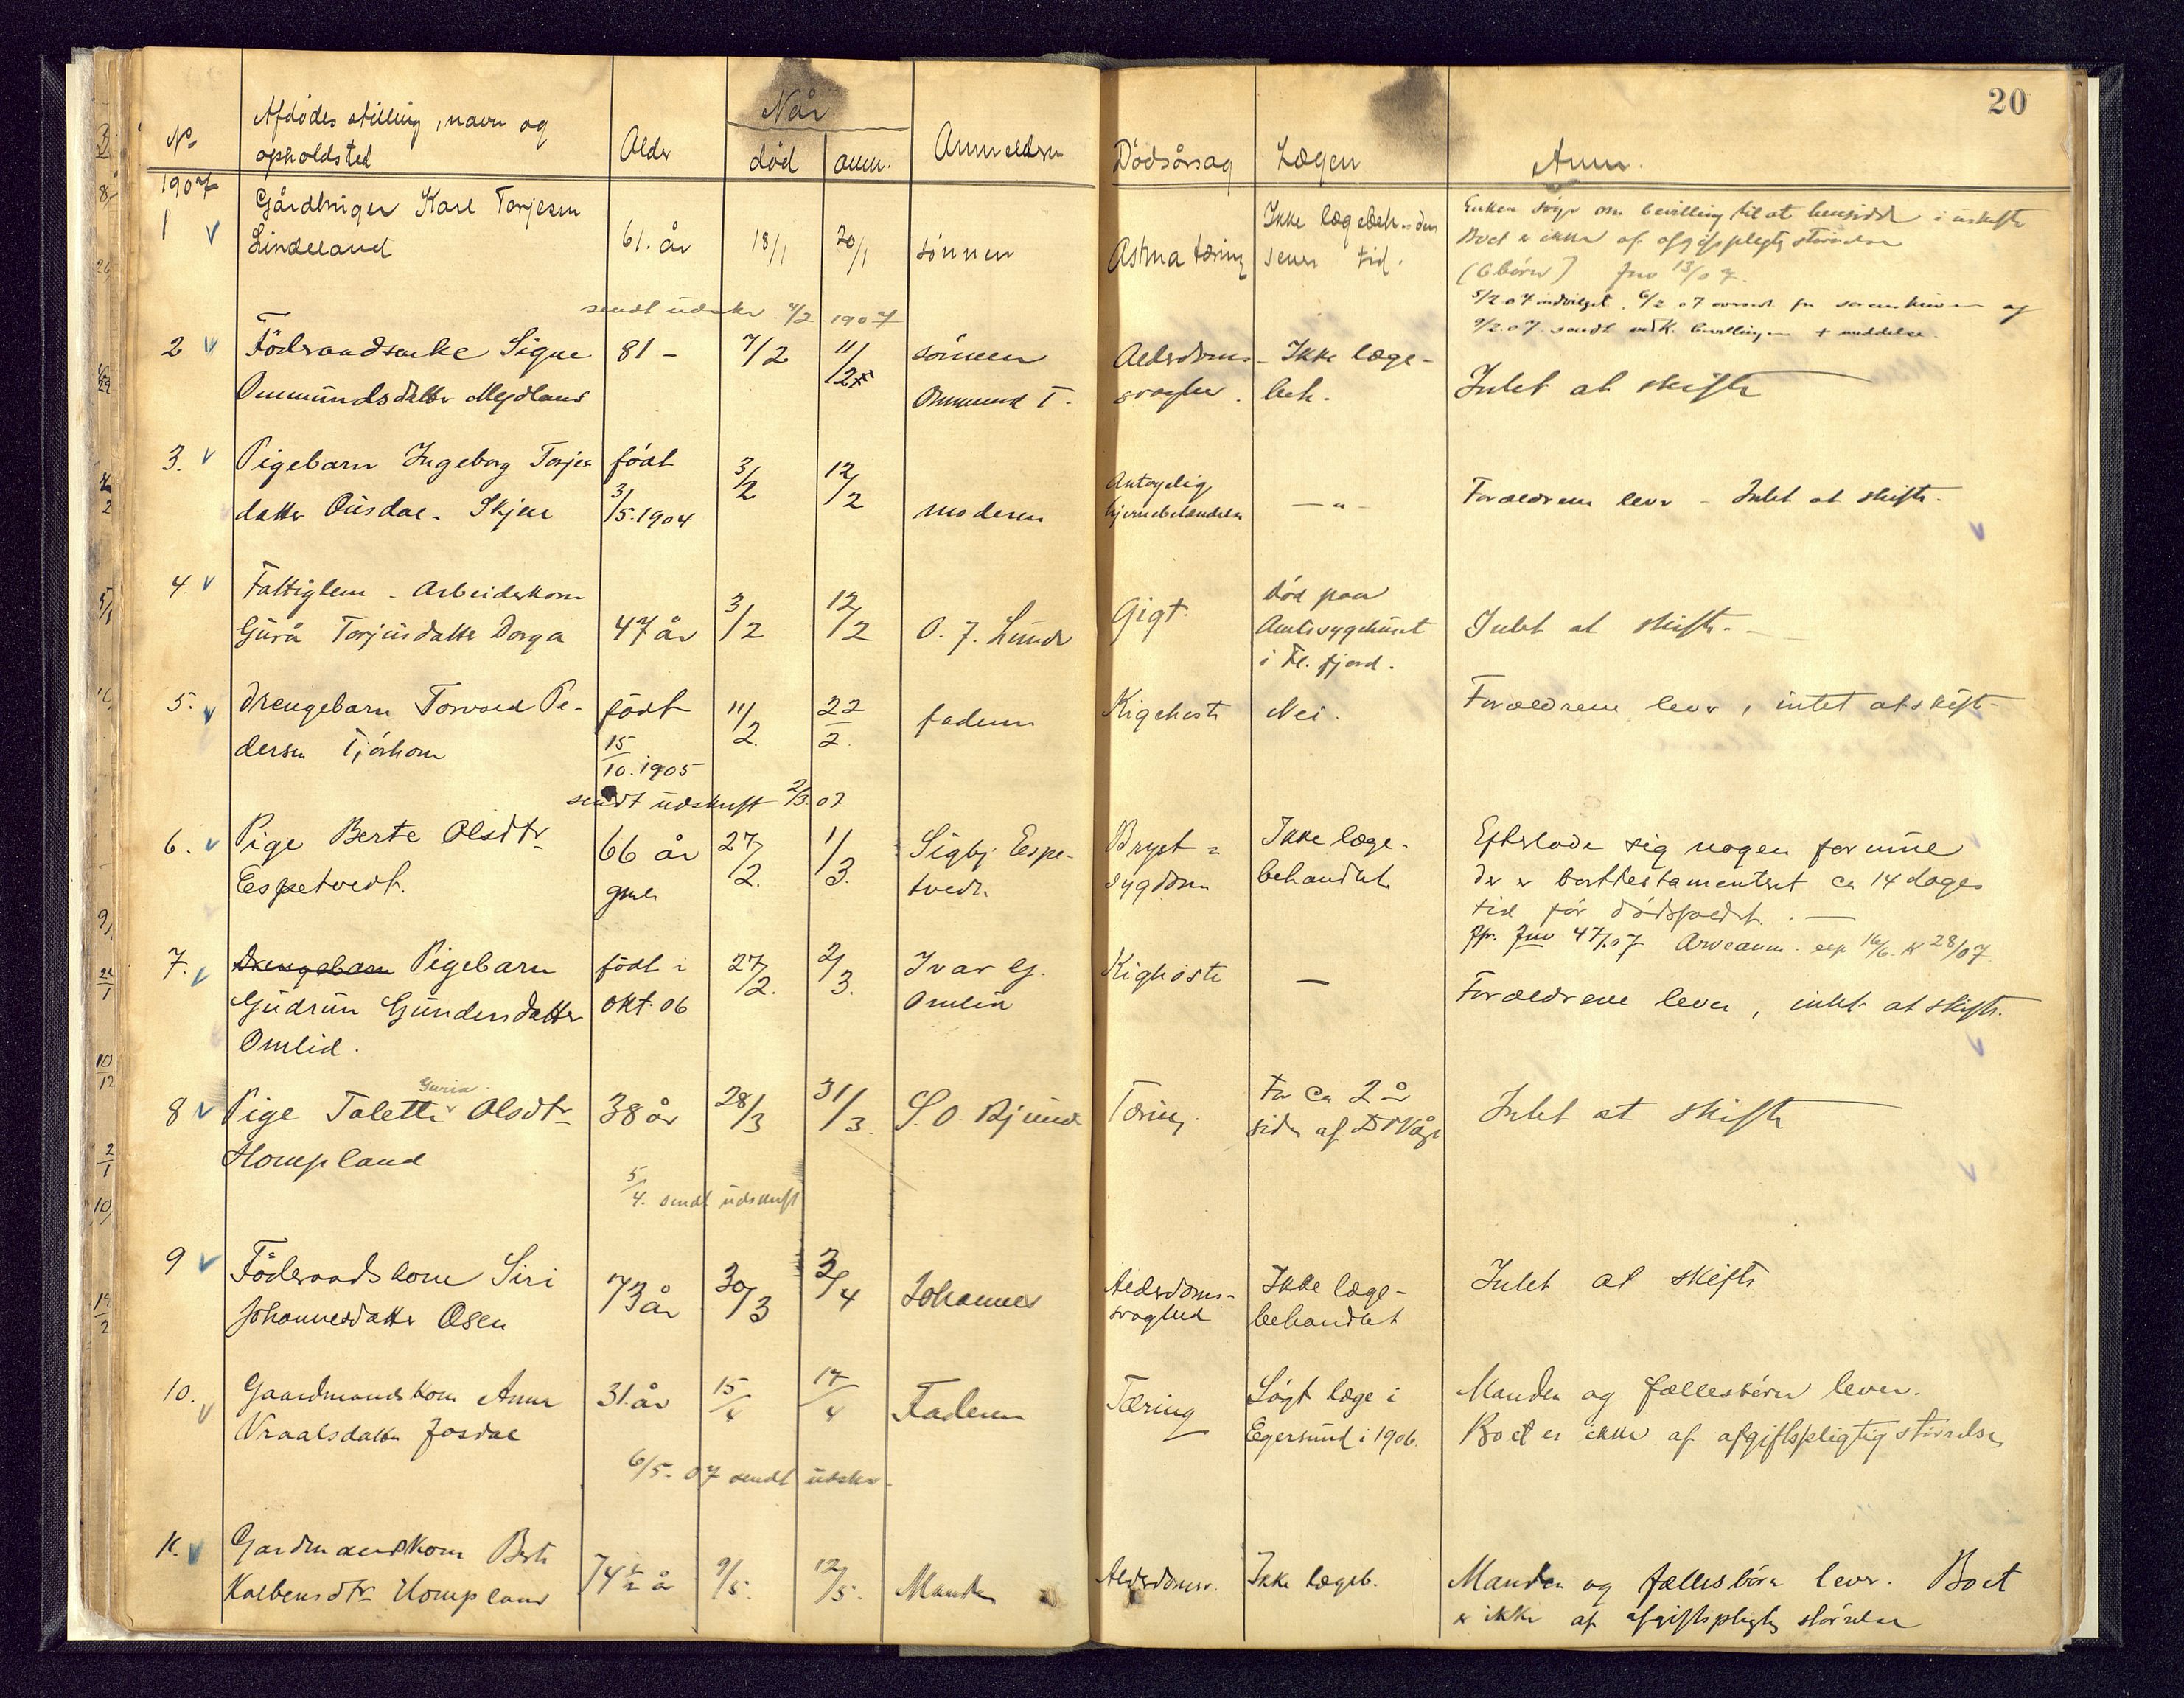 20
No
Afdödes stilling, navn og
opholdsted
Alder
Når
död
anm.
Anmelderen
Dödsårsag
Lægen
Anm.
1907
1 Gårdbruger Karl Torjesen
Lindeland
61. år
18/1
20/1
sönnen
Astma tæring
Ikke lægebeh. i den
senere tid.
Enken söger om bevilling til at hensidde i uskifte
Boet er ikke af afgiftspligtig störrelse
(6 börn) Jnr 13/07.
5/2 07 indvilget. 6/2 07 oversendt fra sorenskriveren og
9/2.07. sendt vedk. bevillingen + meddelse.
sendt udskr. 4/2 1907
2 Föderaadsenke Signe
Ommundsdatter Mydland
81 -
7/2
11/2
sönnen
Ommund T.
Alderdoms-
svaghed.
Ikke læge-
beh.
Intet at skifte
3. Pigebarn Ingeborg Torjes
datter Ousdal - Skjen
födt
3/5.1904
3/2
12/2
moderen
Antagelig
hjernebetændelse
— " -
Forældrene lever - Intet at skifte.
4. Fattiglem - Arbeiderkone
Gurå Torjusdatter Dorga
47 år
3/2
12/2
O. J. Lunde
Gigt.
död paa
Amtssygehuset
i Fl. fjord.
Intet at skifte.
5. Drengebarn Torvald Pe-
dersen Tjörhom
födt
15/10.1905
11/2.
22/2.
faderen
Kighoste
Nei.
Forældrene lever, intet at skifte
sendt udskrift 2/3.07
6. Pige Berte Olsdtr
Espetvedt.
66 år
gml.
27/2.
1/3.
Sigbj. Espe-
tvedt.
Bryst =
sygdom
Ikke læge-
behandlet
Efterlader sig nogen formue
der er borttestamentert ca 14 dages
tid för dödsfaldet. —
Jfr. Jnr 47/07 Arveanm. exp 16/6. 28/07.
7. Drengebarn Pigebarn
Gudrun Gundersdatter
Omlid.
födt i
okt. 06
27/2.
2/3.
Ivar G.
Omlid
Kighoste
—
Forældrene lever, intet at skifte.
8 Pige Taletta Guria Olsdtr
Hompland
38 år
28/3
31/3.
S. O. Bjunes
Tæring.
For ca 2 år
siden af Dr Våge
Intet at skifte
5/4. sendt udskrift
9 Föderaadskone Siri
Johannesdatter Osen
73 år
30/3
3/4
Johannes
Alderdoms-
svaghed
Ikke læge-
behandlet
Intet at skifte
10. Gaardmandskone Anna
Vraalsdatter Josdal
31 år
15/4
17/4
Faderen
Tæring
Sögt læge i
Egersund i 1906.
Manden og fællesbörn lever.
Boet er ikke af afgiftspligtig störrelse
6/5 - 07 sendt udskr.
11. Gardmandskone Berte
Kalbensdtr Hompland
74 1/2 år
9/5.
12/5.
Manden
Alderdomsv.
Ikke lægeb.
Manden og fællesbörn lever. Boet
er ikke af afgiftspligtig störrelse